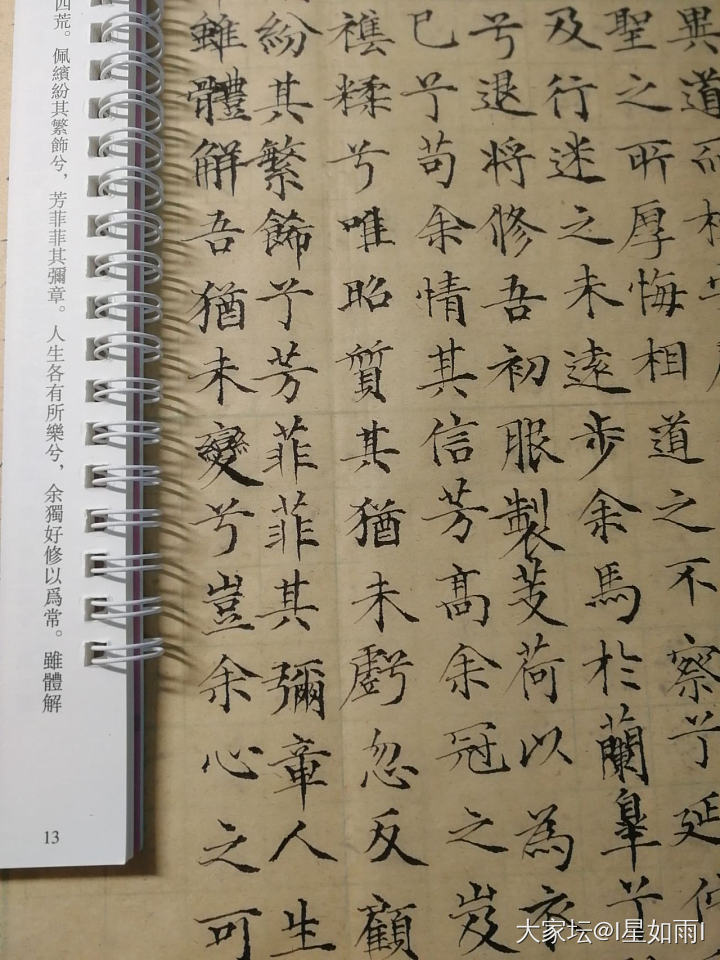 異道
聖之所厚悔相道之不察兮延佇
及行迷之未遠步余馬於蘭皋兮
兮退將修吾初服製芰荷以為衣
已兮苟余情其信芳高余冠之岌
襍糅兮唯昭質其猶未虧忽反顧
紛其繁飾兮芳菲菲其彌章人生
雖體解吾猶未變兮豈余心之可
四荒。佩繽紛其繁飾兮，芳菲菲其彌章。人生各有所樂兮，余獨好修以爲常。雖體解
13
大家坛@I星如雨I